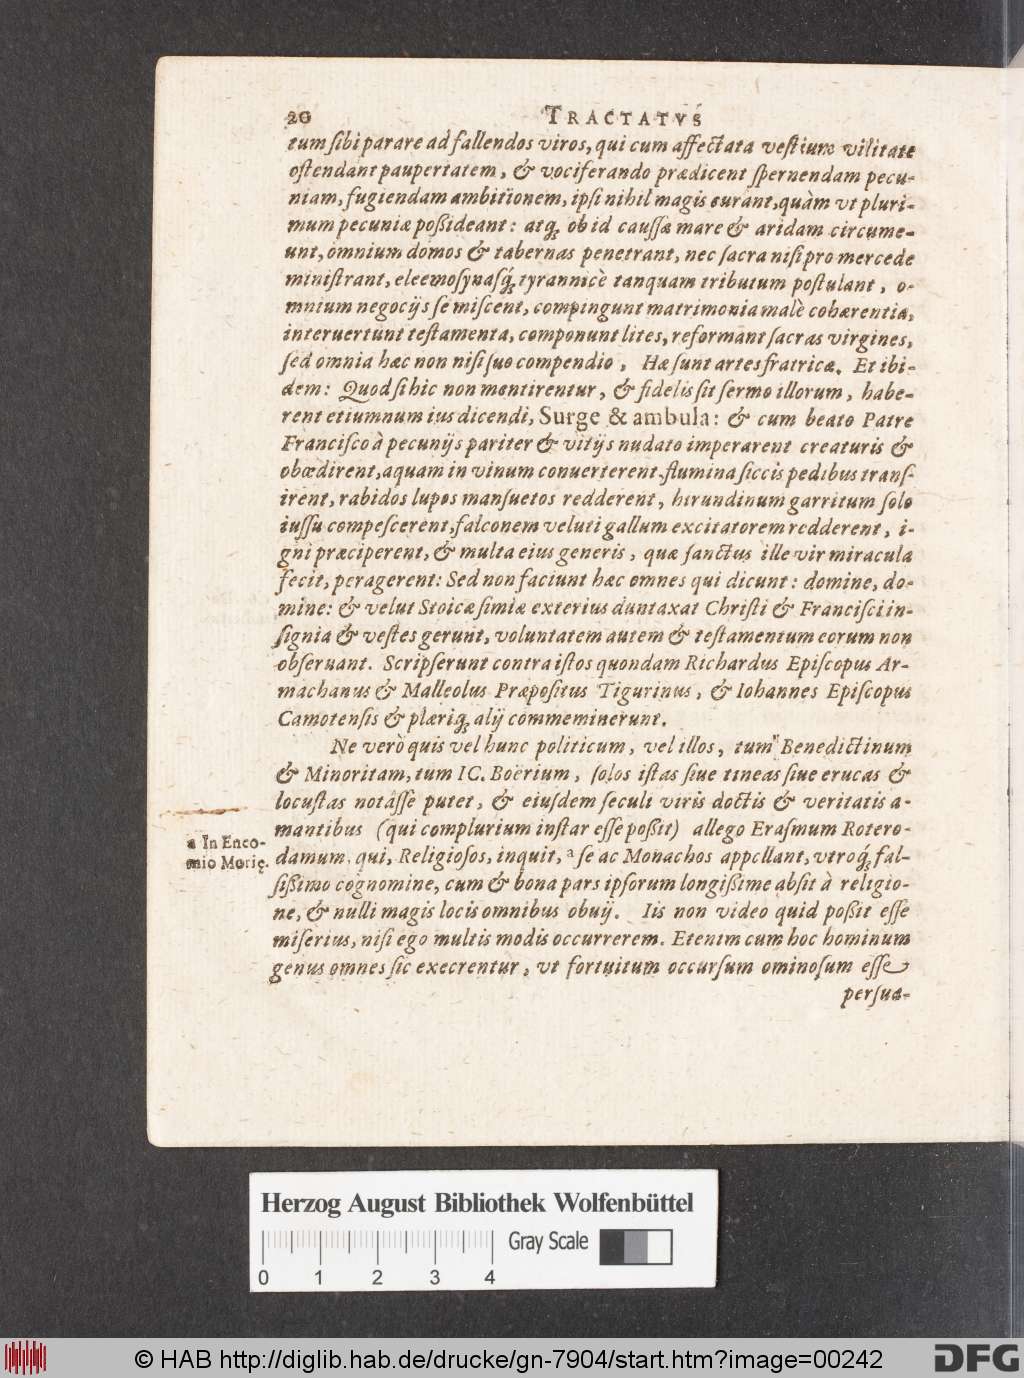 20 TRACTATVS
tum sibi parare ad fallendos viros, qui cum affectata vestium vilitate
ostendant paupertatem, & vociferando prædicent spernendam pecu-
niam, fugiendam ambitionem, ipsi nihil magis curant, quàm vt pluri-
mum pecuniæ poßideant: atq; ob id caussæ mare & aridam circume-
unt, omnium domos & tabernas penetrant, nec sacra nisi pro mercede
ministrant, eleemosynasq́; tyrannicè tanquam tributum postulant, o-
mnium negocijs se miscent, compingunt matrimonia malè cohærentia,
interuertunt testamenta, componunt lites, reformant sacras virgines,
sed omnia hæc non nisi suo compendio, Hæ sunt artes fratricæ. Et ibi-
dem: Quod si hic non mentirentur, & fidelis sit sermo illorum, habe-
rent etiumnum ius dicendi, Surge & ambula: & cum beato Patre
Francisco à pecunijs pariter & vitijs nudato imperarent creaturis &
obœdirent, aquam in vinum conuerterent, flumina siccis pedibus trans-
irent, rabidos lupos mansuetos redderent, hirundinum garritum solo
iussu compescerent, falconem veluti gallum excitatorem redderent, i-
gni præciperent, & multa eius generis, quæ sanctus ille vir miracula
fecit, peragerent: Sed non faciunt hæc omnes qui dicunt: domine, do-
mine: & velut Stoicæ simiæ exterius duntaxat Christi & Francisci in-
signia & vestes gerunt, voluntatem autem & testamentum eorum non
obseruant. Scripserunt contra istos quondam Richardus Episcopus Ar-
machanus & Malleolus Præpositus Tigurinus, & Iohannes Episcopus
Camotensis & plæriq; alij commeminerunt.
Ne verò quis vel hunc politicum, vel illos, tum Benedictinum
& Minoritam, tum IC. Boërium, solos istas siue tineas siue erucas &
locustas notâsse putet, & eiusdem seculi viris doctis & veritatis a-
mantibus (qui complurium instar esse poßit) allego Erasmum Rotero-
damum, qui, Religiosos, inquit, a se ac Monachos appellant, vtroq́; fal-
sißimo cognomine, cum & bona pars ipsorum longißime absit à religio-
ne, & nulli magis locis omnibus obuij. Iis non video quid poßit esse
miserius, nisi ego multis modis occurrerem. Etenim cum hoc hominum
genus omnes sic execrentur, vt fortuitum occursum ominosum esse
persua-
a In Enco-
mio Morię.
Herzog August Bibliothek Wolfenbüttel
Gray Scale
0 1 2 3 4
© HAB http://diglib.hab.de/drucke/gn-7904/start.htm?image=00242
DFG